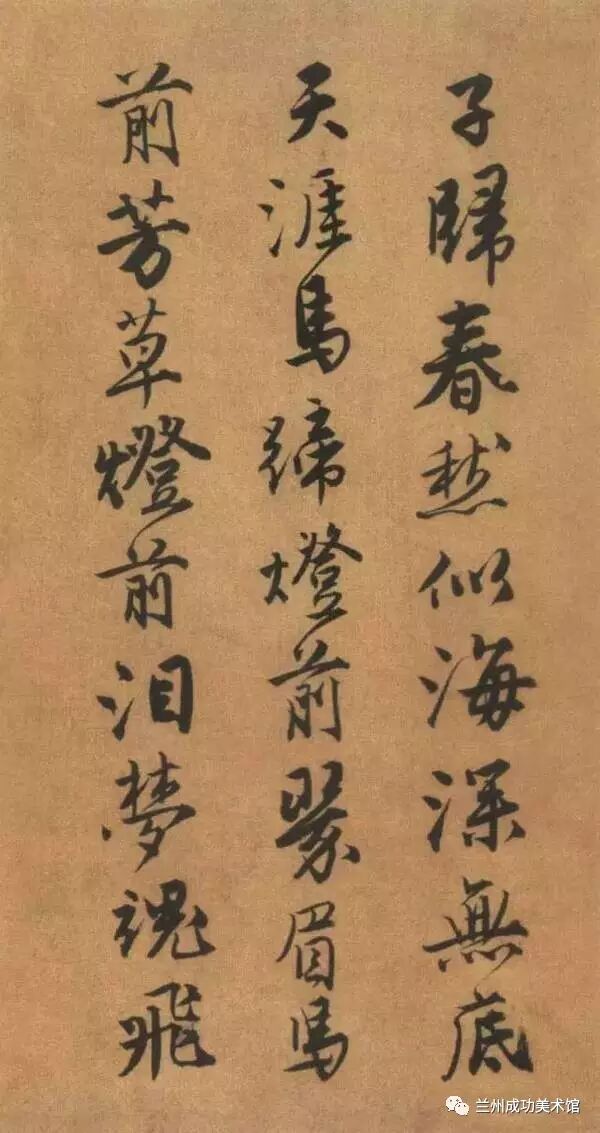 子歸春愁似海深無底
天涯馬蹄燈前翠眉馬
前芳草燈前泪夢魂飛
兰州成功美术馆